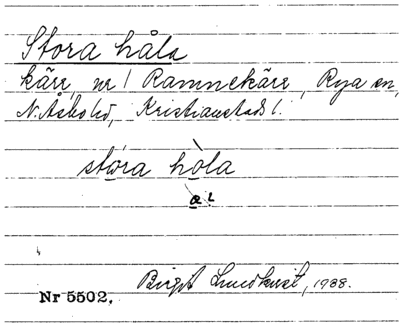 Stora håla
kärr, nr 1 Ramnekärr, Rya sn,
N. Åsbo hd, Kristianstads l.
stóra hòla
a!
Birgit Lundkvist, 1938.
Nr 5502.